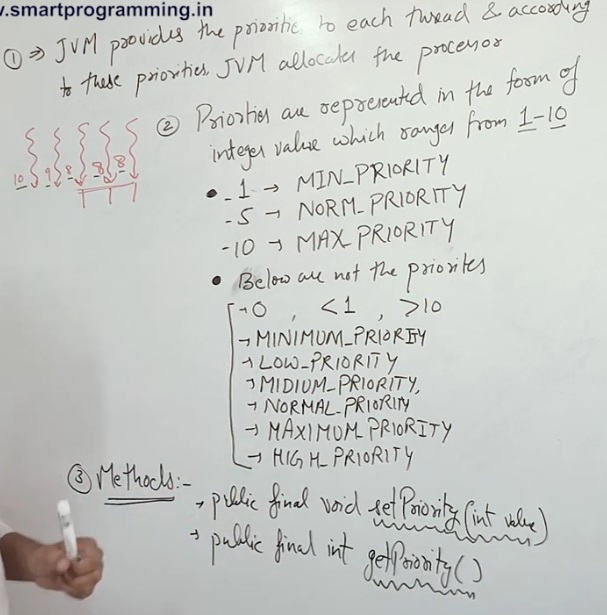 .smartprogramming.in
① ⇒ JVM provides the prioritie to each thread & according
to these priorities JVM allocates the processor
② Priorities are represented in the form of
integer value which ranges from 1-10
10 9 8 8 8
• - 1 → MIN_PRIORITY
- 5 → NORM_PRIORITY
- 10 → MAX_PRIORITY
• Below are not the priorites
→ 0 , <1 , >10
→ MINIMUM_PRIORITY
→ LOW_PRIORITY
→ MIDIUM_PRIORITY,
→ NORMAL_PRIORITY
→ MAXIMUM_PRIORITY
→ HIGH_PRIORITY
③ Methods:-
→ public final void setPriority(int value)
→ public final int getPriority()